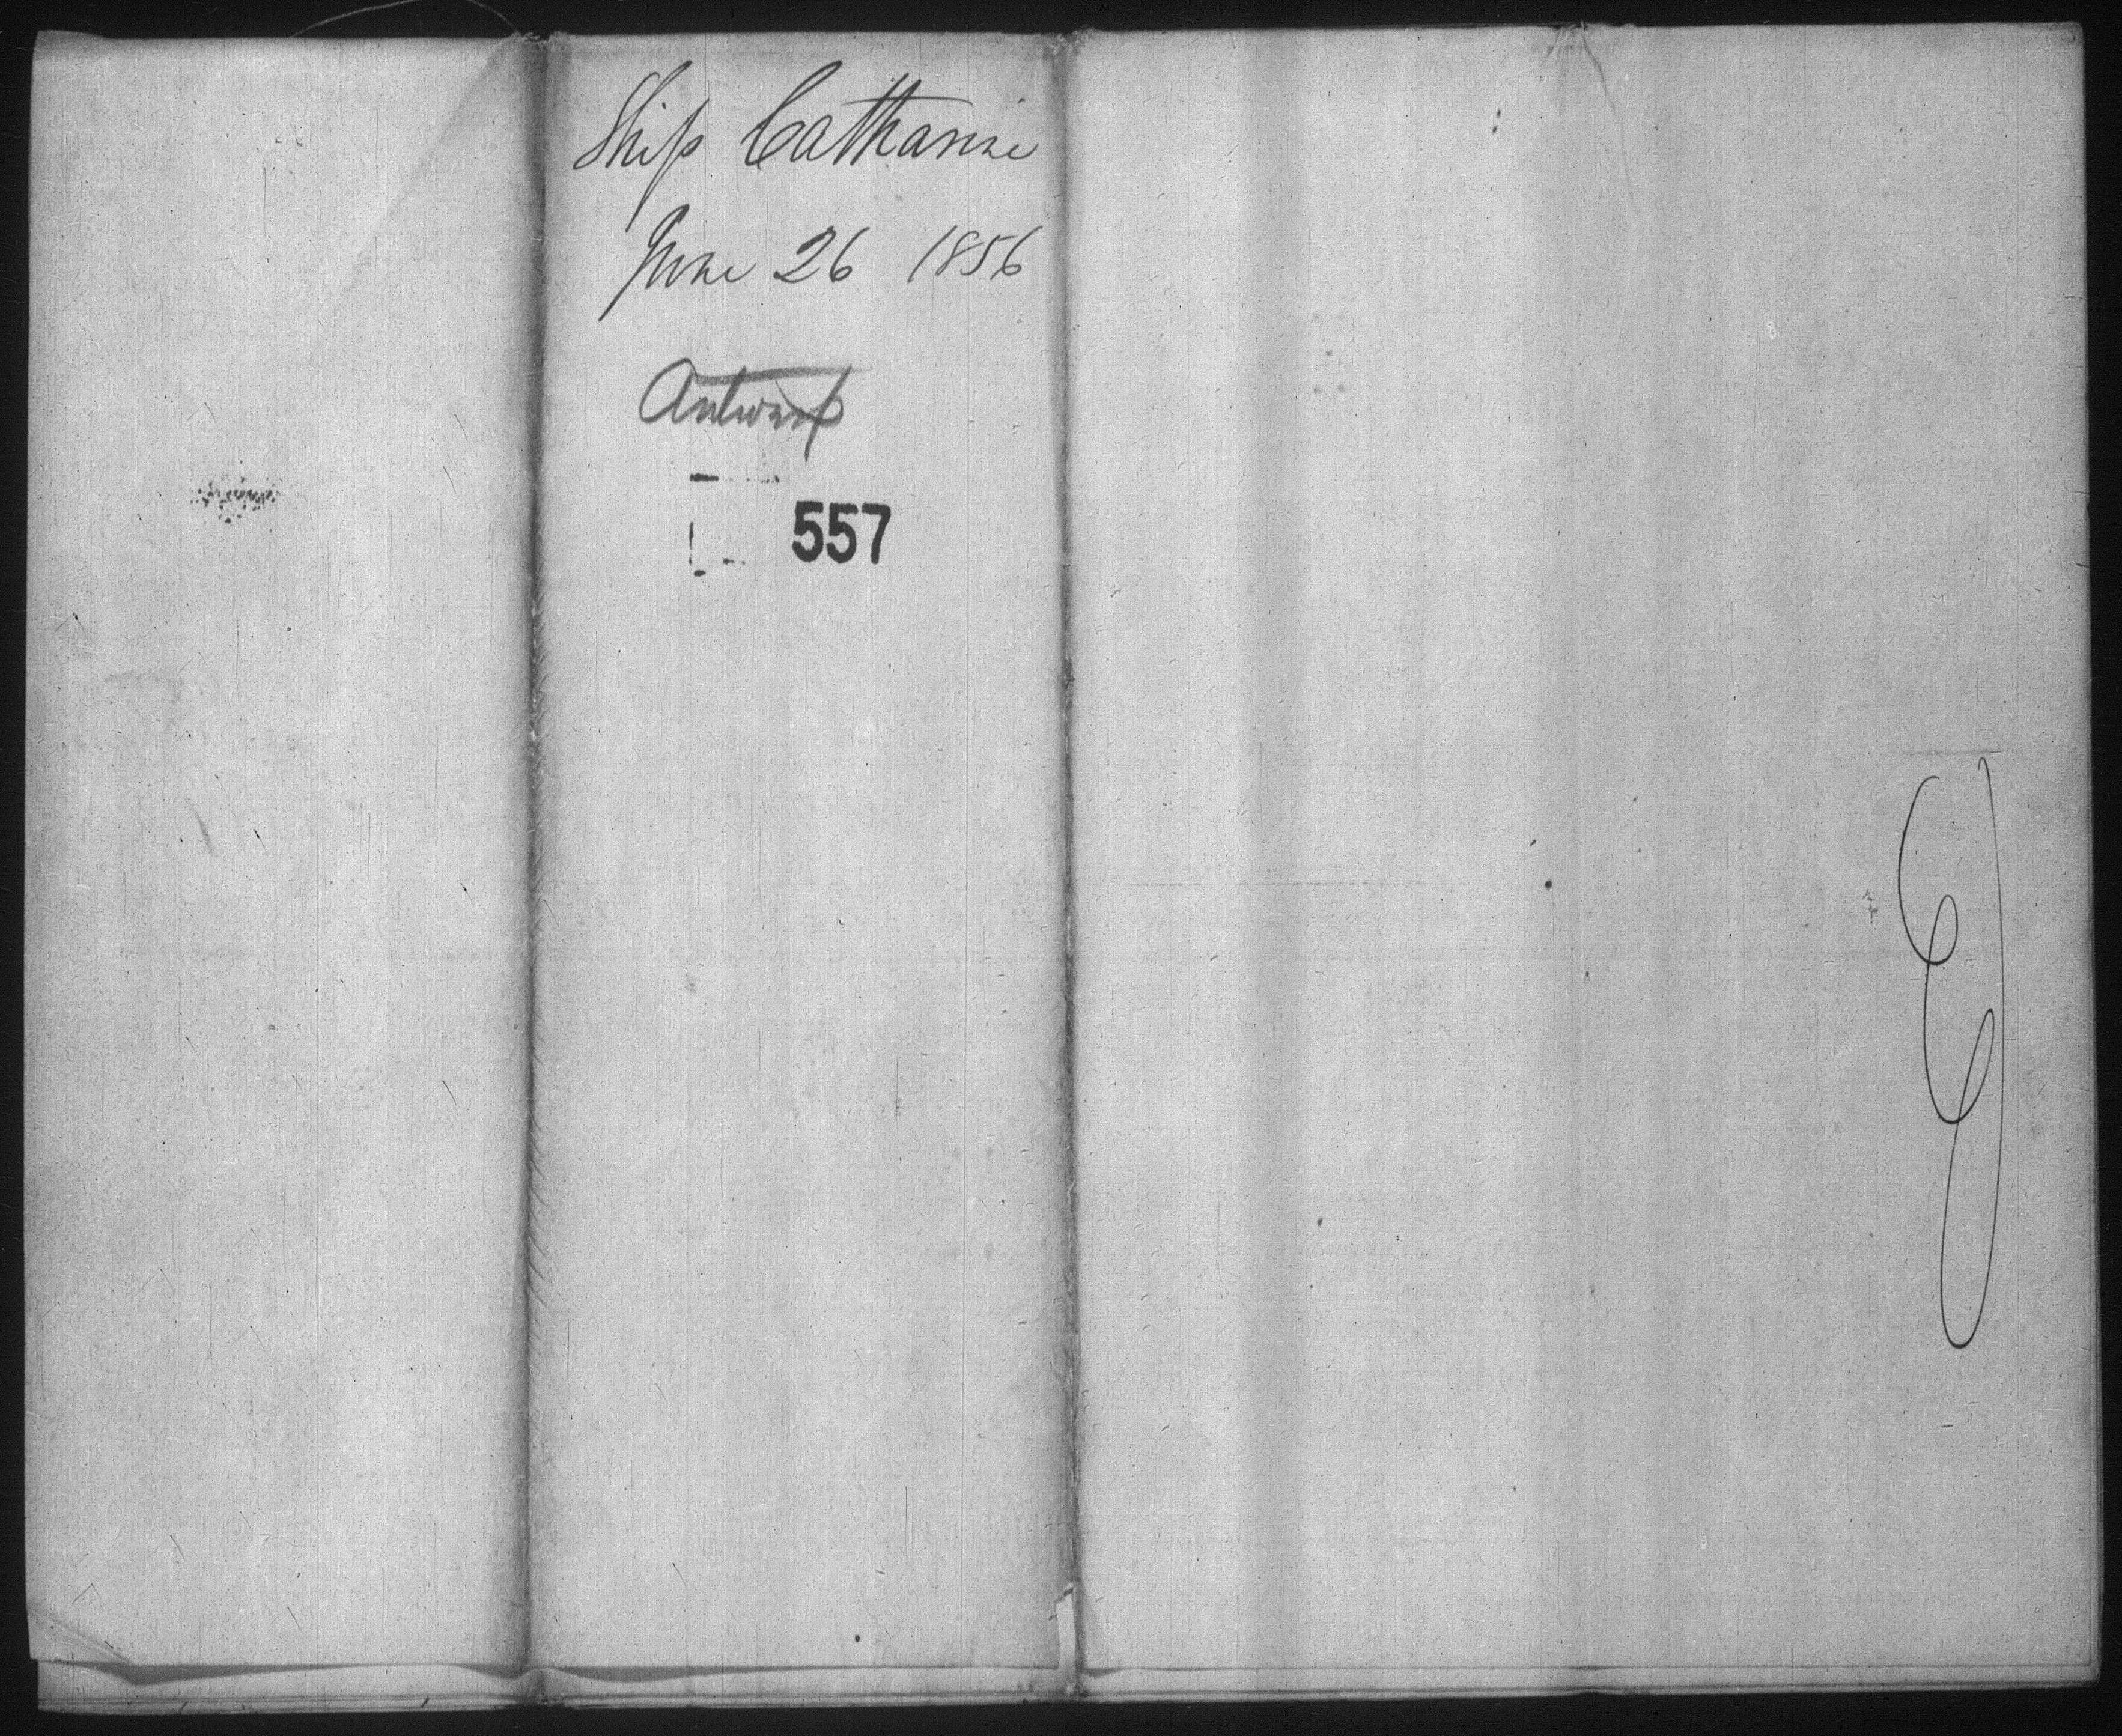 Ship Catharine
June 26 1856
Antwerp
557